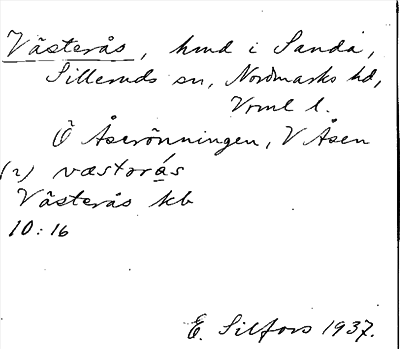 Västerås, hmd i Sanda,
Silleruds sn, Nordmarks hd,
Vrml l.
Ö Åserönningen, V Åsen
(2) væstərås
Västerås kb
10:16
E. Silfors 1937.